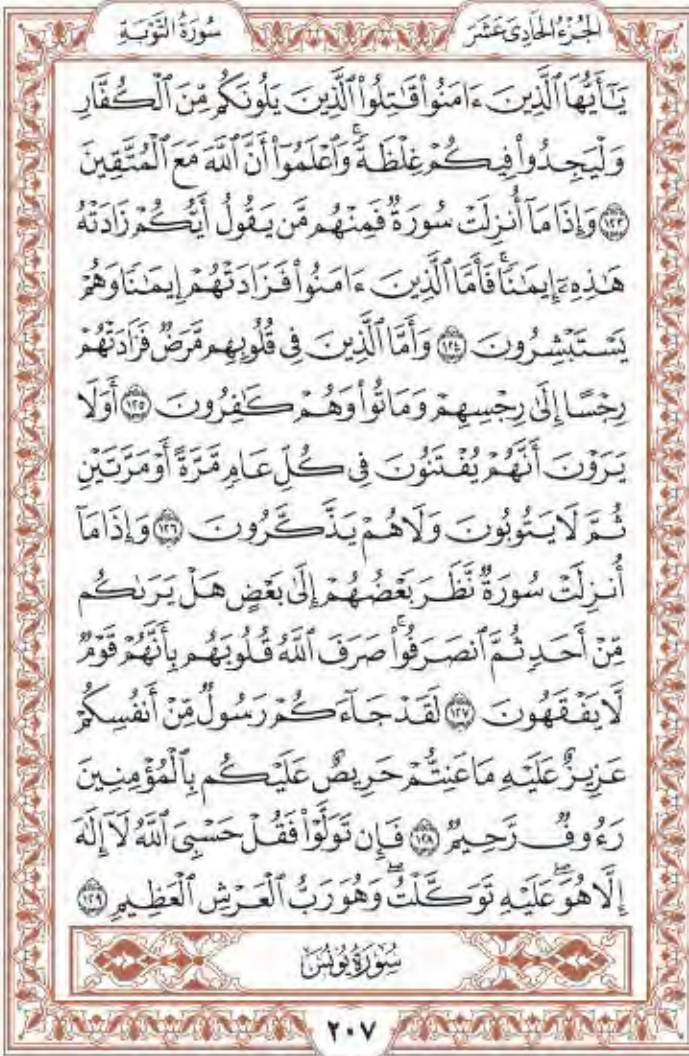 سُورَةُ التَّوْبَةِ الجُزْءُ الحَادِي عَشَرَ
يَـٰٓأَيُّهَا ٱلَّذِينَ ءَامَنُوا۟ قَـٰتِلُوا۟ ٱلَّذِينَ يَلُونَكُم مِّنَ ٱلْكُفَّارِ
وَلْيَجِدُوا۟ فِيكُمْ غِلْظَةً ۚ وَٱعْلَمُوٓا۟ أَنَّ ٱللَّهَ مَعَ ٱلْمُتَّقِينَ
١٢٣ وَإِذَا مَآ أُنزِلَتْ سُورَةٌ فَمِنْهُم مَّن يَقُولُ أَيُّكُمْ زَادَتْهُ
هَـٰذِهِۦٓ إِيمَـٰنًا ۚ فَأَمَّا ٱلَّذِينَ ءَامَنُوا۟ فَزَادَتْهُمْ إِيمَـٰنًا وَهُمْ
يَسْتَبْشِرُونَ ١٢٤ وَأَمَّا ٱلَّذِينَ فِى قُلُوبِهِم مَّرَضٌ فَزَادَتْهُمْ
رِجْسًا إِلَىٰ رِجْسِهِمْ وَمَاتُوا۟ وَهُمْ كَـٰفِرُونَ ١٢٥ أَوَلَا
يَرَوْنَ أَنَّهُمْ يُفْتَنُونَ فِى كُلِّ عَامٍ مَّرَّةً أَوْ مَرَّتَيْنِ
ثُمَّ لَا يَتُوبُونَ وَلَا هُمْ يَذَّكَّرُونَ ١٢٦ وَإِذَا مَآ
أُنزِلَتْ سُورَةٌ نَّظَرَ بَعْضُهُمْ إِلَىٰ بَعْضٍ هَلْ يَرَىٰكُم
مِّنْ أَحَدٍ ثُمَّ ٱنصَرَفُوا۟ ۚ صَرَفَ ٱللَّهُ قُلُوبَهُم بِأَنَّهُمْ قَوْمٌ
لَّا يَفْقَهُونَ ١٢٧ لَقَدْ جَآءَكُمْ رَسُولٌ مِّنْ أَنفُسِكُمْ
عَزِيزٌ عَلَيْهِ مَا عَنِتُّمْ حَرِيصٌ عَلَيْكُم بِٱلْمُؤْمِنِينَ
رَءُوفٌ رَّحِيمٌ ١٢٨ فَإِن تَوَلَّوْا۟ فَقُلْ حَسْبِىَ ٱللَّهُ لَآ إِلَـٰهَ
إِلَّا هُوَ ۖ عَلَيْهِ تَوَكَّلْتُ ۖ وَهُوَ رَبُّ ٱلْعَرْشِ ٱلْعَظِيمِ ١٢٩
سُورَةُ يُونُسَ
٢٠٧